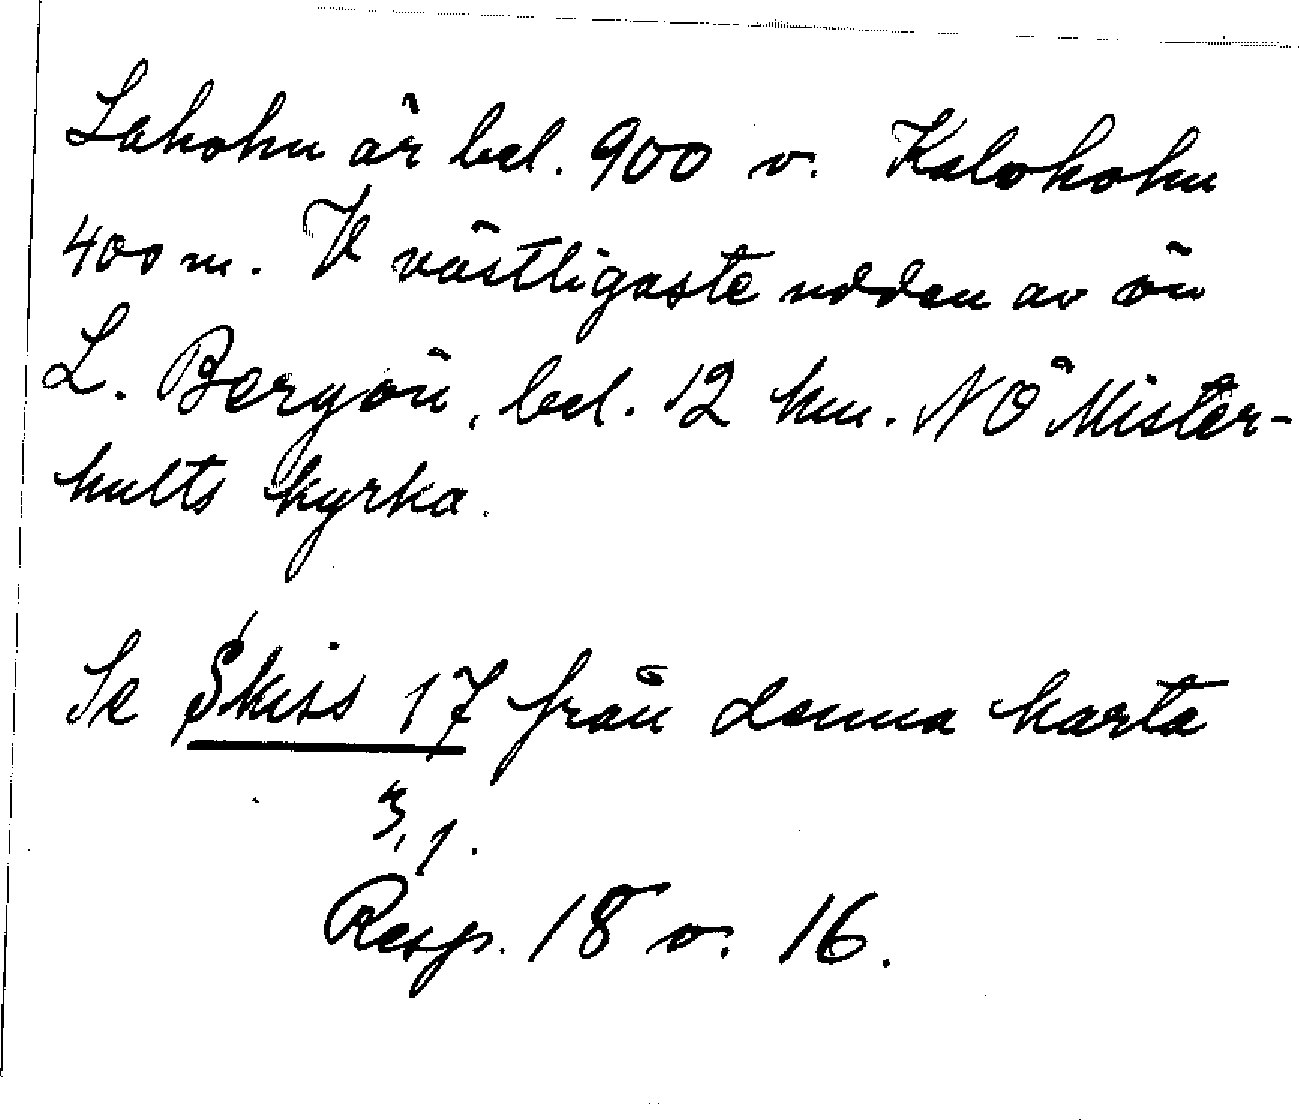 Laholm är bel. 900 o. Kaloholm
400 m. V västligaste udden av ön
L. Bergön, bel. 12 km. NÖ Mister-
hults kyrka.
Se Skiss 17 från denna karta
3, 1.
Resp. 18 o. 16.